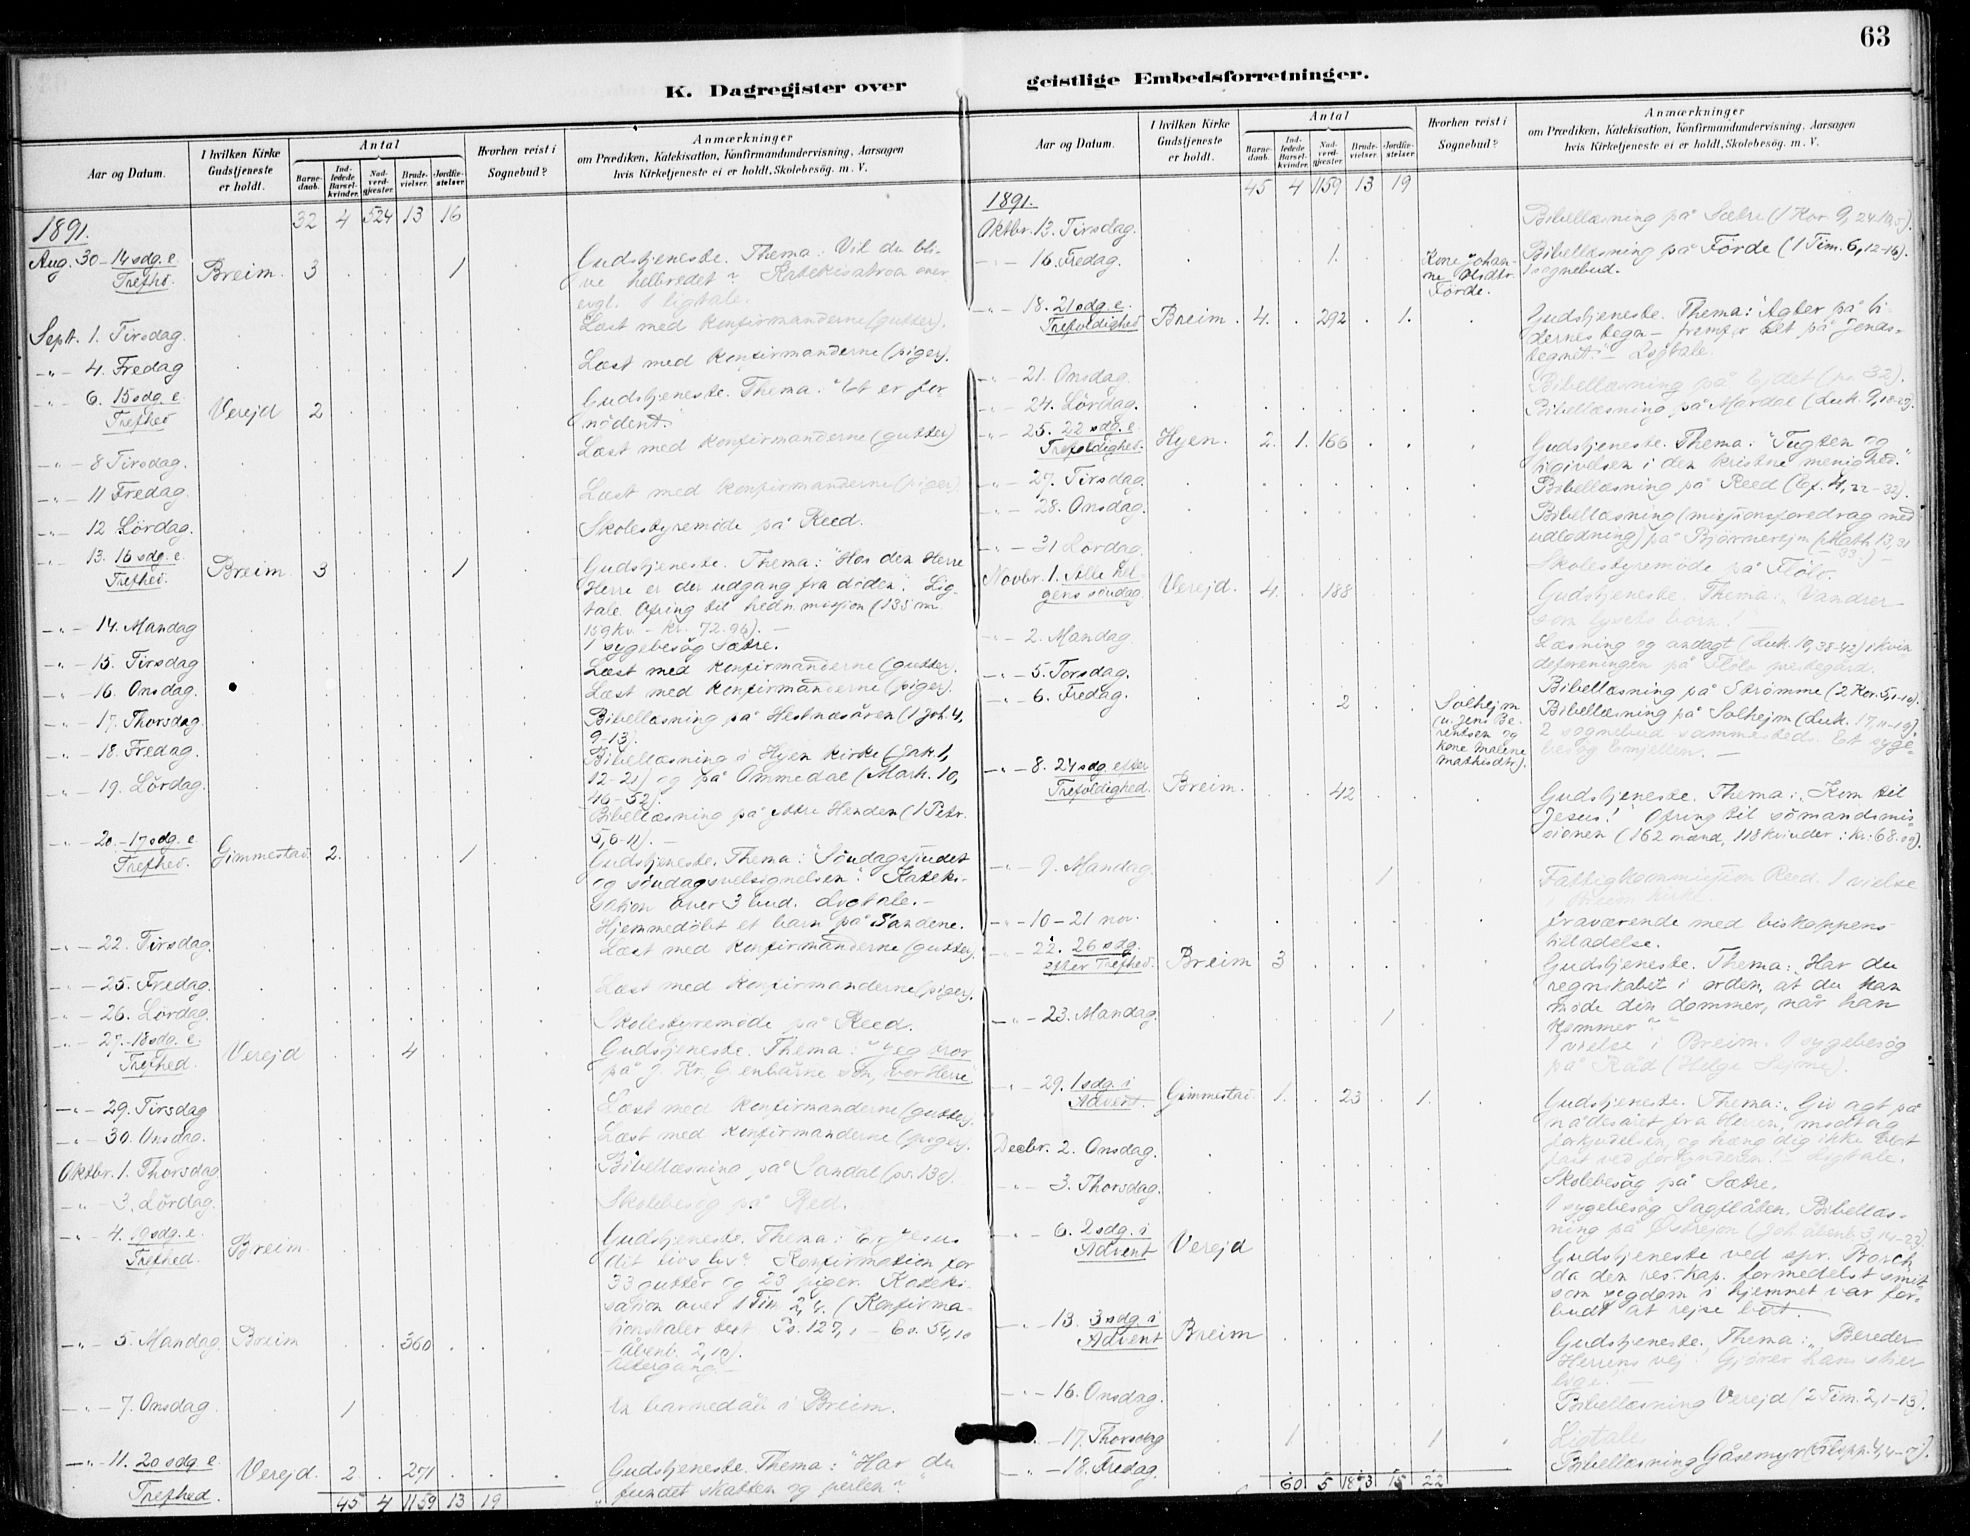 63
K. Dagregister over geistlige Embedsforretninger.
Aar og Datum.
I hvilken Kirke Gudstjeneste er holdt.
Antal
Barnedaab.
Indledede Barselkvinder.
Nadverdgjester
Brudevielser.
Jordfæstelser
Hvorhen reist i Sognebud?
Anmærkninger
om Prædiken, Katekisation, Konfirmandundervisning, Aarsagen
hvis Kirketjeneste ei er holdt, Skolebesøg. m. V.
1891. 32 4 524 13 16
Aug. 30 - 14 sdg. e. Trefhd. Breim. 3 1 Gudstjeneste. Thema: Vil du bli-
ve helbredet? Katekisation over
evgl. 1 ligtale.
Septr. 1. Tirsdag. Læst med konfirmanderne (gutter).
-"- 4. Fredag Læst med konfirmanderne (piger).
-"- 6. 15 sdg. e. Trefhed Verejd 2 Gudstjeneste. Thema: "Et er for-
nødent."
-"- 8 Tirsdag. Læst med konfirmanderne (gutter)
-"- 11 Fredag. Læst med konfirmanderne (piger).
-"- 12 Lördag. Skolestyremöde på Reed.
-"- 13. 16 sdg. e. Trefhed. Breim. 3 1 Gudstjeneste. Thema: "Hos den Herre
Herre er der udgang fra döden". Lig-
tale. Ofring til hedn. misjon (135 m.
159 kv. - kr. 72.96). -
-"- 14. Mandag 1 sygebesög Sætre.
-"- 15. Tirsdag Læst med konfirmanderne (gutter).
-"- 16. Onsdag. Læst med konfirmanderne (piger).
-"- 17. Thorsdag. Bibellæsning på Hestnesören (1 Joh. 4,
9-13).
-"- 18. Fredag. Bibellæsning i Hyen kirke (Jak. 1,
12-21) og på Ommedal (Mark. 10,
46-52).
-"- 19. Lördag. Bibellæsning på ytre Henden (1 Petr.
5, 6-11). -
-"- 20. - 17 sdg. e. Trefhed. Gimmestad. 2. 1 Gudstjeneste. Thema: "Söndagsbudet
og söndagsvelsignelsen". Kateki-
sation over 3 bud. Ligtale. -
Hjemmedöbt et barn på Sandene.
-"- 22. Tirsdag. Læst med konfirmanderne (gutter).
-"- 25. Fredag. Læst med konfirmanderne (piger).
-"- 26. Lördag. Skolestyremöde på Reed.
-"- 27. - 18 sdg. e. Trefhed. Verejd 4 Gudstjeneste. Thema: "Jeg tror
på J. Kr. G. enbårne sön, vor Herre
-"- 29. Tirsdag Læst med konfirmanderne (gutter).
-"- 30. Onsdag. Læst med konfirmanderne (piger).
Oktbr. 1. Thorsdag Bibellæsning på Sandal (ps. 130).
-"- 3. Lördag. Skolebesög på Red.
-"- 4. 19 sdg. e. Trefhed. Breim. Gudstjeneste. Thema: "Er Jesus
dit livs lys"? Konfirmation for
33 gutter og 23 piger. Kateki-
sation over 1 Tim. 2, 4. (Konfirma-
tionstaler text Ps. 127, 1 - Es. 54, 10
- åbenb. 2, 10).
-"- 5. Mandag Breim 360 Altergang. -
-"- 7. Onsdag. 1 En barnedåb i Breim.
-"- 11. 20 sdg. e. Trefhed. Verejd. 2. 271 Gudstjeneste. Thema: "Har du
fundet skatten og perlen"?
45 4 1159 13 19
Aar og Datum.
I hvilken Kirke Gudstjeneste er holdt.
Antal
Barnedaab.
Indledede Barselkvinder.
Nadverdgjester
Brudevielser.
Jordfæstelser
Hvorhen reist i Sognebud?
Anmærkninger
om Prædiken, Katekisation, Konfirmandundervisning, Aarsagen
hvis Kirketjeneste ei er holdt, Skolebesøg. m. V.
45 4 1159 13 19
1891.
Oktbr. 13. Tirsdag. Bibellæsning på Sætre (1 Kor. 9, 24-10, 5).
-"- 16. Fredag. 1. Kone Johan-
ne Olsdtr.
Förde. Bibellæsning på Förde (1 Tim. 6, 12-16).
1 sognebud.
-"- 18. 21 sdg. e. Trefoldighed Breim. 4. 292 1. Gudstjeneste. Thema: "Agter på ti-
dernes tegn - fremfor alt på Jonas-
tegnet." - Ligtale.
-"- 21. Onsdag. Bibellæsning på Ejdet (ps. 32).
-"- 24. Lördag. Bibellæsning på Mardal (Luk. 9, 18-27).
-"- 25. 22 sdg. e. Trefoldighed. Hyen. 2. 1. 166 Gudstjeneste. Thema: "Tugten og
tilgivelsen i den kristne menighed."
-"- 27. Tirsdag Bibellæsning på Reed (Ef. 4, 22-32).
-"- 28. Onsdag. Bibellæsning (missionsforedrag med
udlodning) på Bjørnerejm (Math. 13, 31
- 33.) -
-"- 31 Lördag. Skolestyremöde på Flölo.
Novbr. 1. Alle hel-
gens söndag Verejd. 4. 188 Gudstjeneste. Thema: "Vandrer
som lysets börn!"
-"- 2. Mandag. Læsning og andagt (Luk. 10, 38-42) i kvin-
deforeningen på Flölo
-"- 5. Torsdag. Bibellæsning på Strömme (2 Kor. 5, 1-10).
-"- 6. Fredag. 2 Solhejm
(u. Jens Be-
rentsen og
kone Malene
Mathisdtr). Bibellæsning på Solhejm (Luk. 17, 11-19).
2 sognebud sammesteds. Et syge-
besög
-"- 8. 24 sdg. efter Trefoldighed. Breim. 42 Gudstjeneste. Thema: "Kom til
Jesus!" Ofring til sömandsmis-
sionen (162 mænd, 118 kvinder: kr: 68.09).
-"- 9. Mandag. 1 Fattigkommission Reed. 1 vielse
i Breim kirke.
-"- 10-21 nov. Fraværende med biskoppens
tilladelse.
-"- 22. 26 sdg. efter Trefhed. Breim 3 Gudstjeneste. Thema: "Har du
regnskabet i orden, at du kan
möde den dommer, når han
kommer"?
-"- 23. Mandag. 1 1 vielse i Breim. 1 sygebesög
på Råd (Helge Sejme).
-"- 29. 1 sdg. i Advent. Gimmestad. 1. 23 1. Gudstjeneste. Thema: "Giv agt på
nådesåret fra Herren, modtag
forkyndelsen, og hæng dig ikke blot
fast ved forkynderen!" - Ligtale.
Decbr. 2. Onsdag. Skolebesög på Sætre.
-"- 3. Thorsdag. 1 sygebesög Sagflåten. Bibellæs-
ning på Østrejm (Joh. åbenb. 3, 14-22).
-"- 6. 2 sdg. i Advent Verejd Gudstjeneste ved spr. Brosch
da den res. kap. formedelst smit-
som sygdom i hjemmet var for-
budt at rejse bort.
-"- 13. 3 sdg. i Advent Breim Gudstjeneste. Thema: "Bereder
Herrens vej! Gjörer hans stier
lige!"
-"- 16. Onsdag. Bibellæsning Verejd (2 Tim. 2, 1-13).
-"- 17. Thorsdag 1 1 Ligtale.
-"- 18. Fredag. Bibellæsning Gåsemyr (Filipp. 4, 4-7).
60 5 1873 15 22